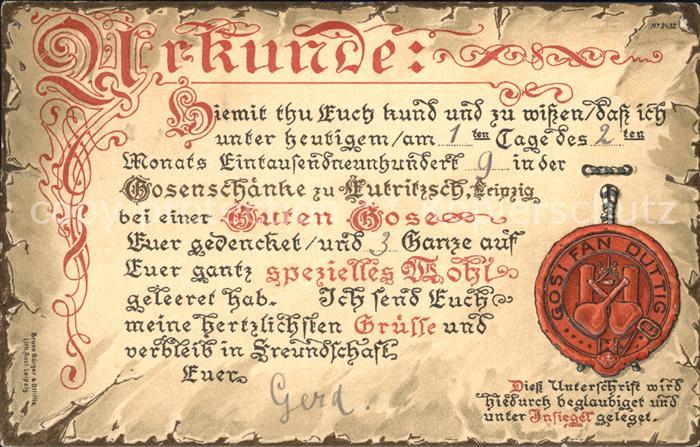 No 3432
Urkunde:
Hiemit thu Euch kund und zu wißen/daß ich
unter heutigem/am 1ten Tage des 2ten
Monats Eintausendneunhundert 9 in der
Gosenschänke zu Eutritzsch, Leipzig
bei einer Guten Gose
Euer gedencket/und 3 Ganze auf
Euer gantz spezielles Wohl
geleeret hab. Ich send Euch
meine hertzlichsten Grüsse und
verbleib in Freundschaft
Euer
Gerd.
GOSI FAN DUTTIG
Dieß Unterschrift wird
hiedurch beglaubiget und
unter Insiegel geleget.
Bruno Bürger & Ottillie,
Lith. Anst. Leipzig